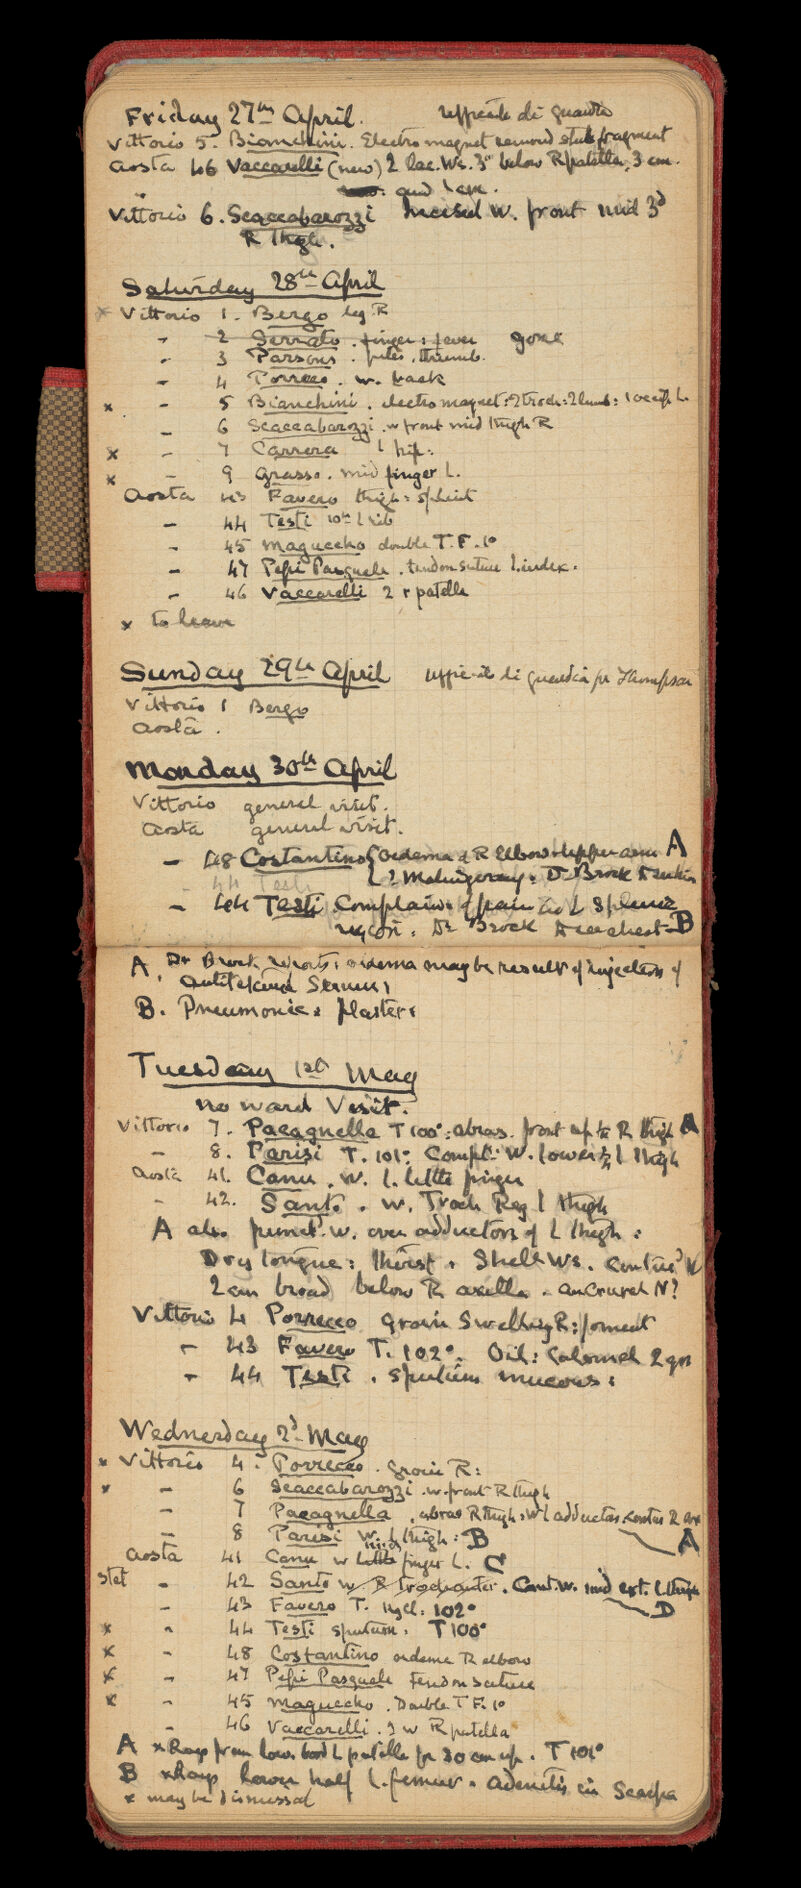 Friday 27th April. di guardia
Vittorio 5. Bianchini. Electro magnet removed fragment
Aosta 46 Vaccarelli (new) 2 lac. Ws. 3" below R patella, 3 cm.
and 1 cm.
Vittorio 6. Scaccabarozzi Incised w. front mid 3d
R thigh.
Saturday 28th April
x Vittorio 1. Bergo leg R
- 2 Serrato. finger: fever gone
- 3 Parsons. thumb.
- 4 Porreco. w. back
x - 5 Bianchini. electro magnet: L.
- 6 Scaccabarozzi. w front mid thigh R
x - 7 Carrera L hip:
x - 9 Grasso. mid finger L.
Aosta 43 Favero thigh: splint
- 44 Testi 10th L rib
- 45 Maguecho double T.F. 1o
- 47 Pepi Pasquale. tendon suture L index.
- 46 Vaccarelli 2 r patella
x to leave
Sunday 29th April di guardia pr Thompson
Vittorio 1 Bergo
Aosta.
Monday 30th April
Vittorio general visit.
Aosta general visit.
- 48 Costantino { Oedema of R Elbow + upper arm A
- 44 Testi
{ ? Malingering: Dr Brock
- 44 Testi Complains of pain in L Splenic
region: Dr Brock chest - B
A. Dr Brock reports: oedema may be result of injection of
Serum:
B. Pneumonic: plaster:
Tuesday 1st May
no ward Visit.
Vittorio 7. Pacagnella T 100o: abras. front up ½ R thigh A
- 8. Parisi T. 101o: Compt: w. lower ½ L thigh
Aosta 41. Canu. w. L. little finger
- 42. Santo. w. Troch Reg L thigh
A also punct. w. over adductors of L thigh:
Dry tongue: thirst. Shell Ws. W
2 cm broad below R axilla. N?
Vittorio 4 Porreco groin swelling R: foment
- 43 Favero T. 102o. Oil: Calomel 2 grs
- 44 Testi. Sputum mucous:
Wednesday 2d May
x Vittorio 4. Porreco. groin R:
x - 6 Scaccabarozzi. w. front R thigh
- 7 Pacagnella. abras R thigh: w L adductors. R ax
A
- 8 Parisi w. L thigh: B
mid
Aosta 41 Canu w little finger L. C
stet - 42 Santo w. R Trochanter. Cont. w. mid ext. L thigh
D
- 43 Favero T. 102o
x - 44 Testi sputum. T 100o
x - 48 Costantino oedema R elbow
x - 47 Pepi Pasquale tendon suture
x - 45 Maguecho. Double T F. 1o
- 46 Vaccarelli. 2 w R patella
A xRays from low. bord L patella for 20 cm up. T 101o
B xRays lower half L. femur. adenitis in Scarpa
x may be dismissed